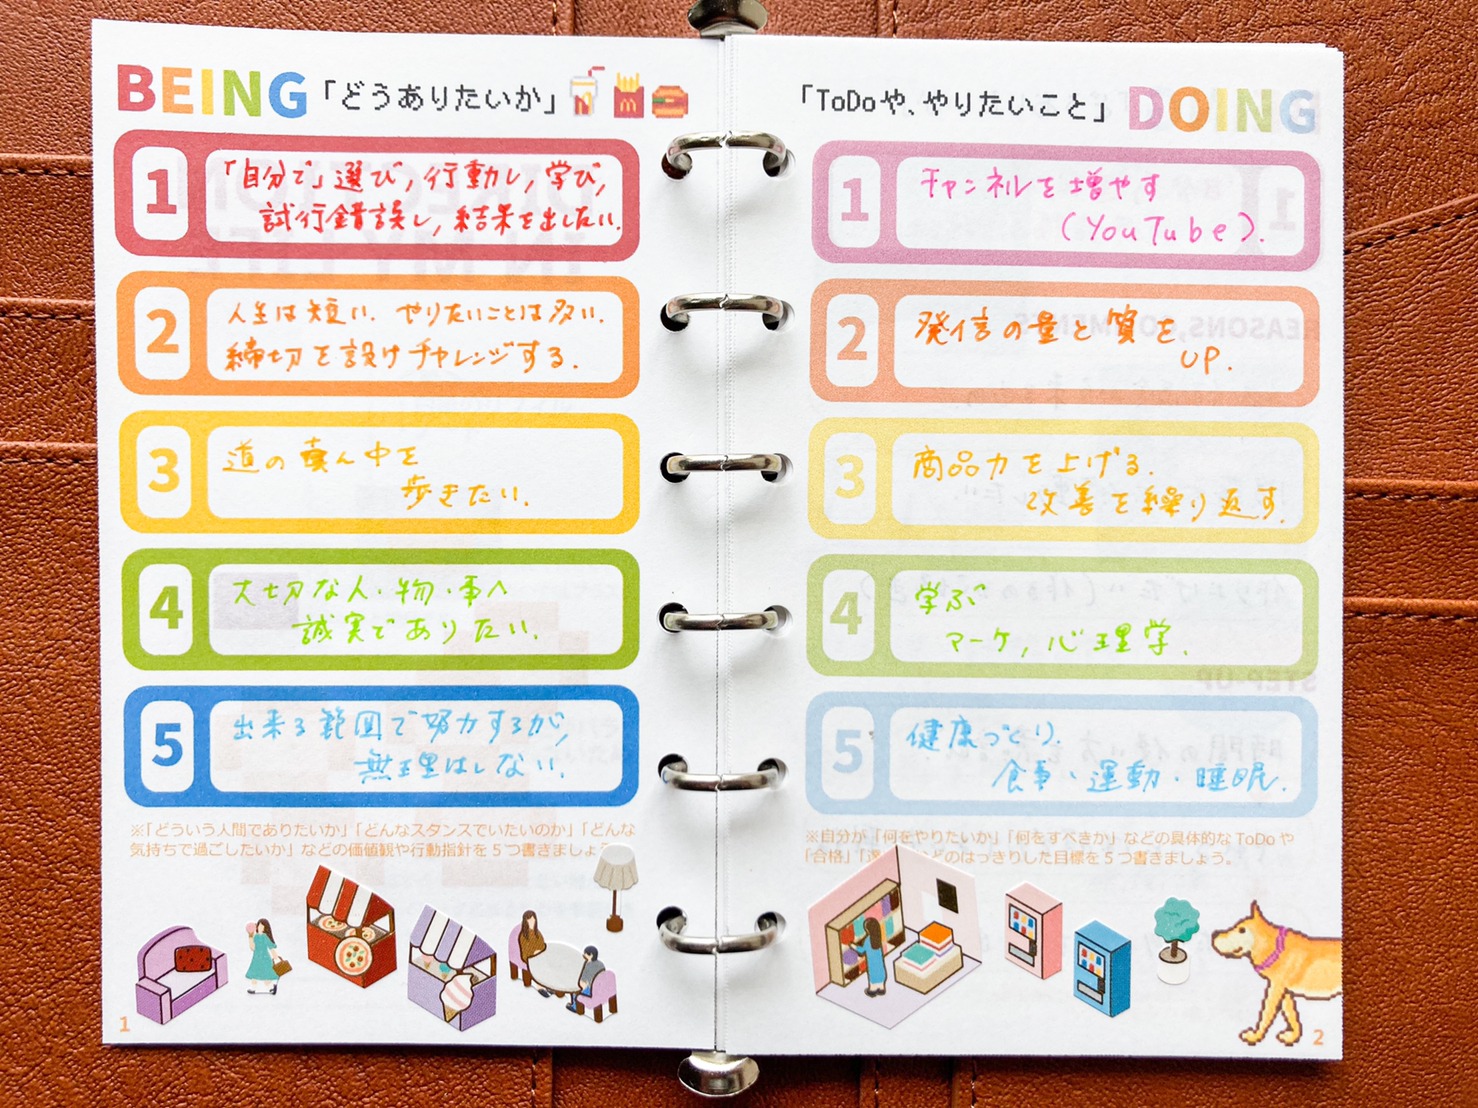 BEING「どうありたいか」
1
「自分で」選び,行動し,学び,
試行錯誤し,結果を出したい.
2
人生は短い.やりたいことは多い.
締切を設けチャレンジする.
3
道の真ん中を
歩きたい.
4
大切な人・物・事へ
誠実でありたい.
5
出来る範囲で努力するが,
無理はしない.
※「どういう人間でありたいか」「どんなスタンスでいたいのか」「どんな
気持ちで過ごしたいか」などの価値観や行動指針を5つ書きましょ
1
「ToDoや、やりたいこと」DOING
1
チャンネルを増やす
(YouTube).
2
発信の量と質を
UP.
3
商品力を上げる.
改善を繰り返す.
4
学ぶ
マーケ,心理学.
5
健康づくり.
食事・運動・睡眠.
※自分が「何をやりたいか」「何をすべきか」などの具体的なToDoや
「合格」「達 どのはっきりした目標を5つ書きましょう。
2